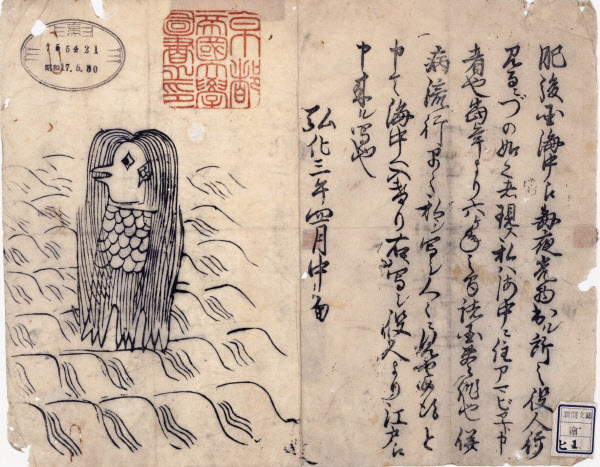 昭和17.5.30
京都
帝國大學
圖書之印
肥後国海中え毎夜光物出ル所之役人行
見るニづの如之者現ス私ハ海中ニ住アマビヱト申
者也当年より六ヶ年之間諸国豊作也併
病流行早々私ヲ写シ人々ニ見せ候得と
申て海中へ入けり右写シ役人より江戸え
申来ル写也
弘化三年四月中旬
新聞文庫
絵
ヒ1